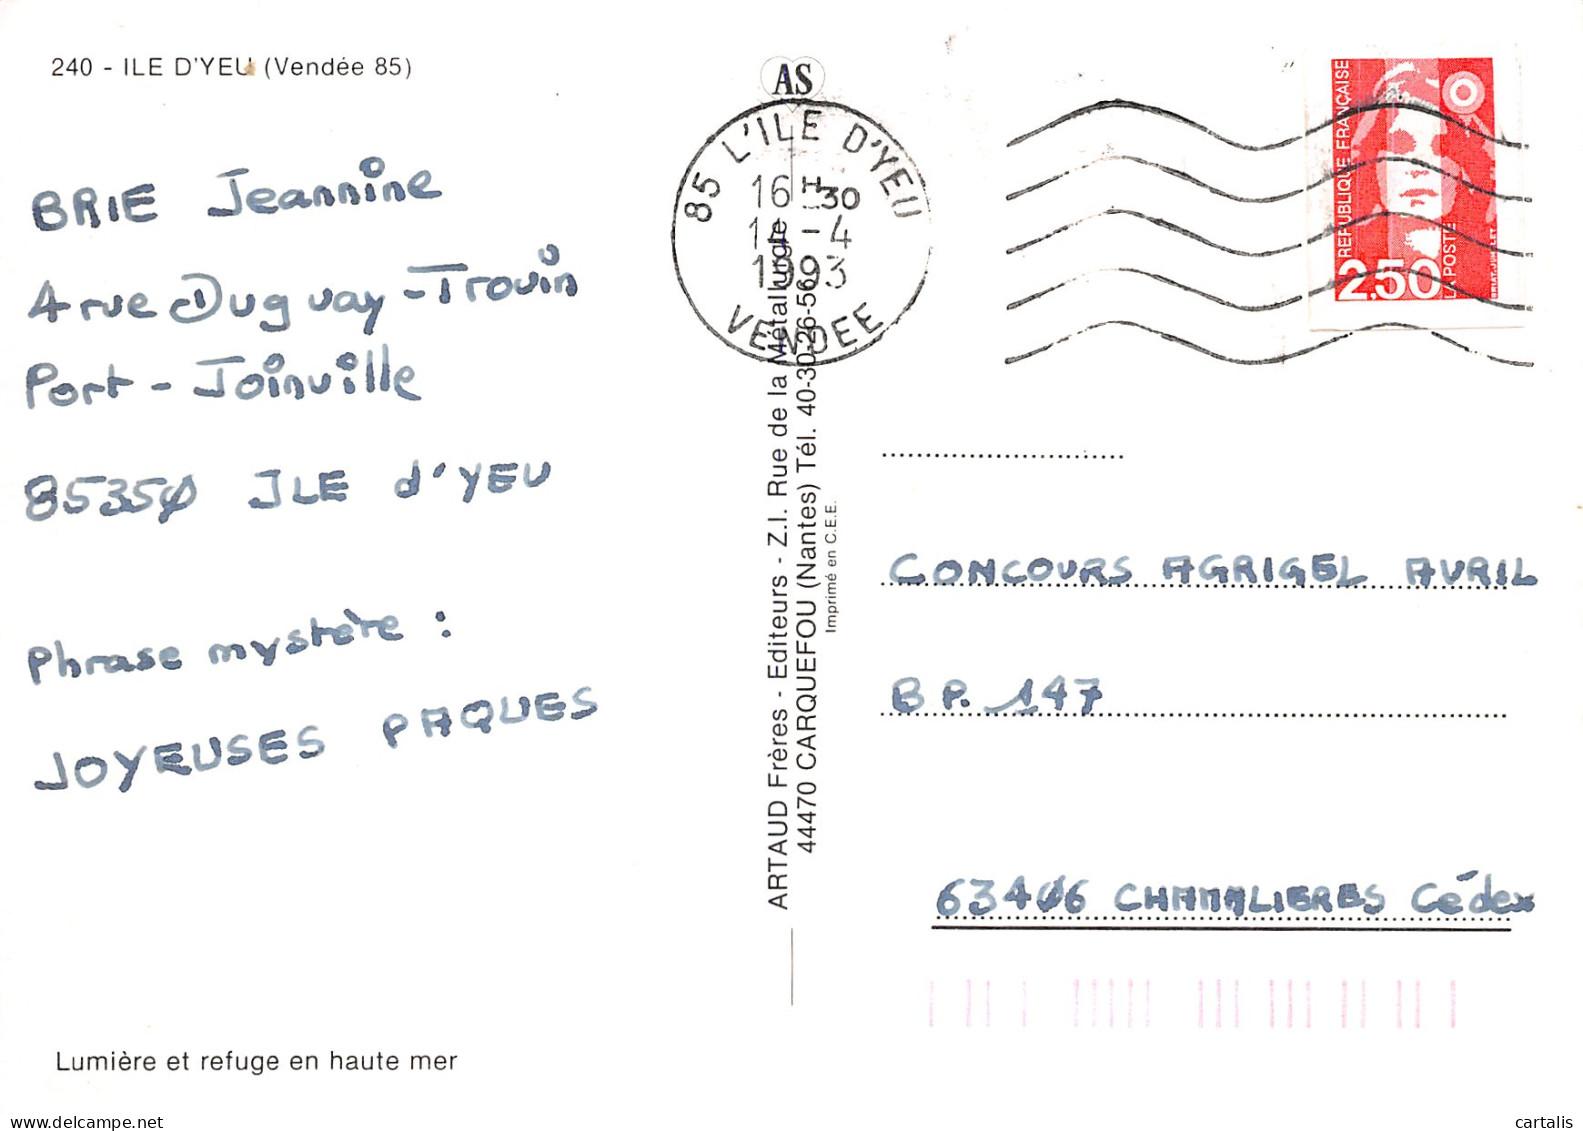 240 - ILE D'YEU (Vendée 85)
BRIE Jeannine
4 rue Duguay-Trouin
Port-Joinville
85350 ILE d'YEU
Phrase mystère :
JOYEUSES PAQUES
Lumière et refuge en haute mer
AS
85 L'ILE D'YEU
16 H 30
-4
1993
VENDEE
ARTAUD Frères - Editeurs - Z.I. Rue de la Métallurgie
44470 CARQUEFOU (Nantes) Tél. 40-30-26-56
Imprimé en C.E.E.
REPUBLIQUE FRANÇAISE
2,50
LA POSTE
CONCOURS AGRIGEL AVRIL
B P. 147
63406 CHAMALIERES Cédex
cartalis